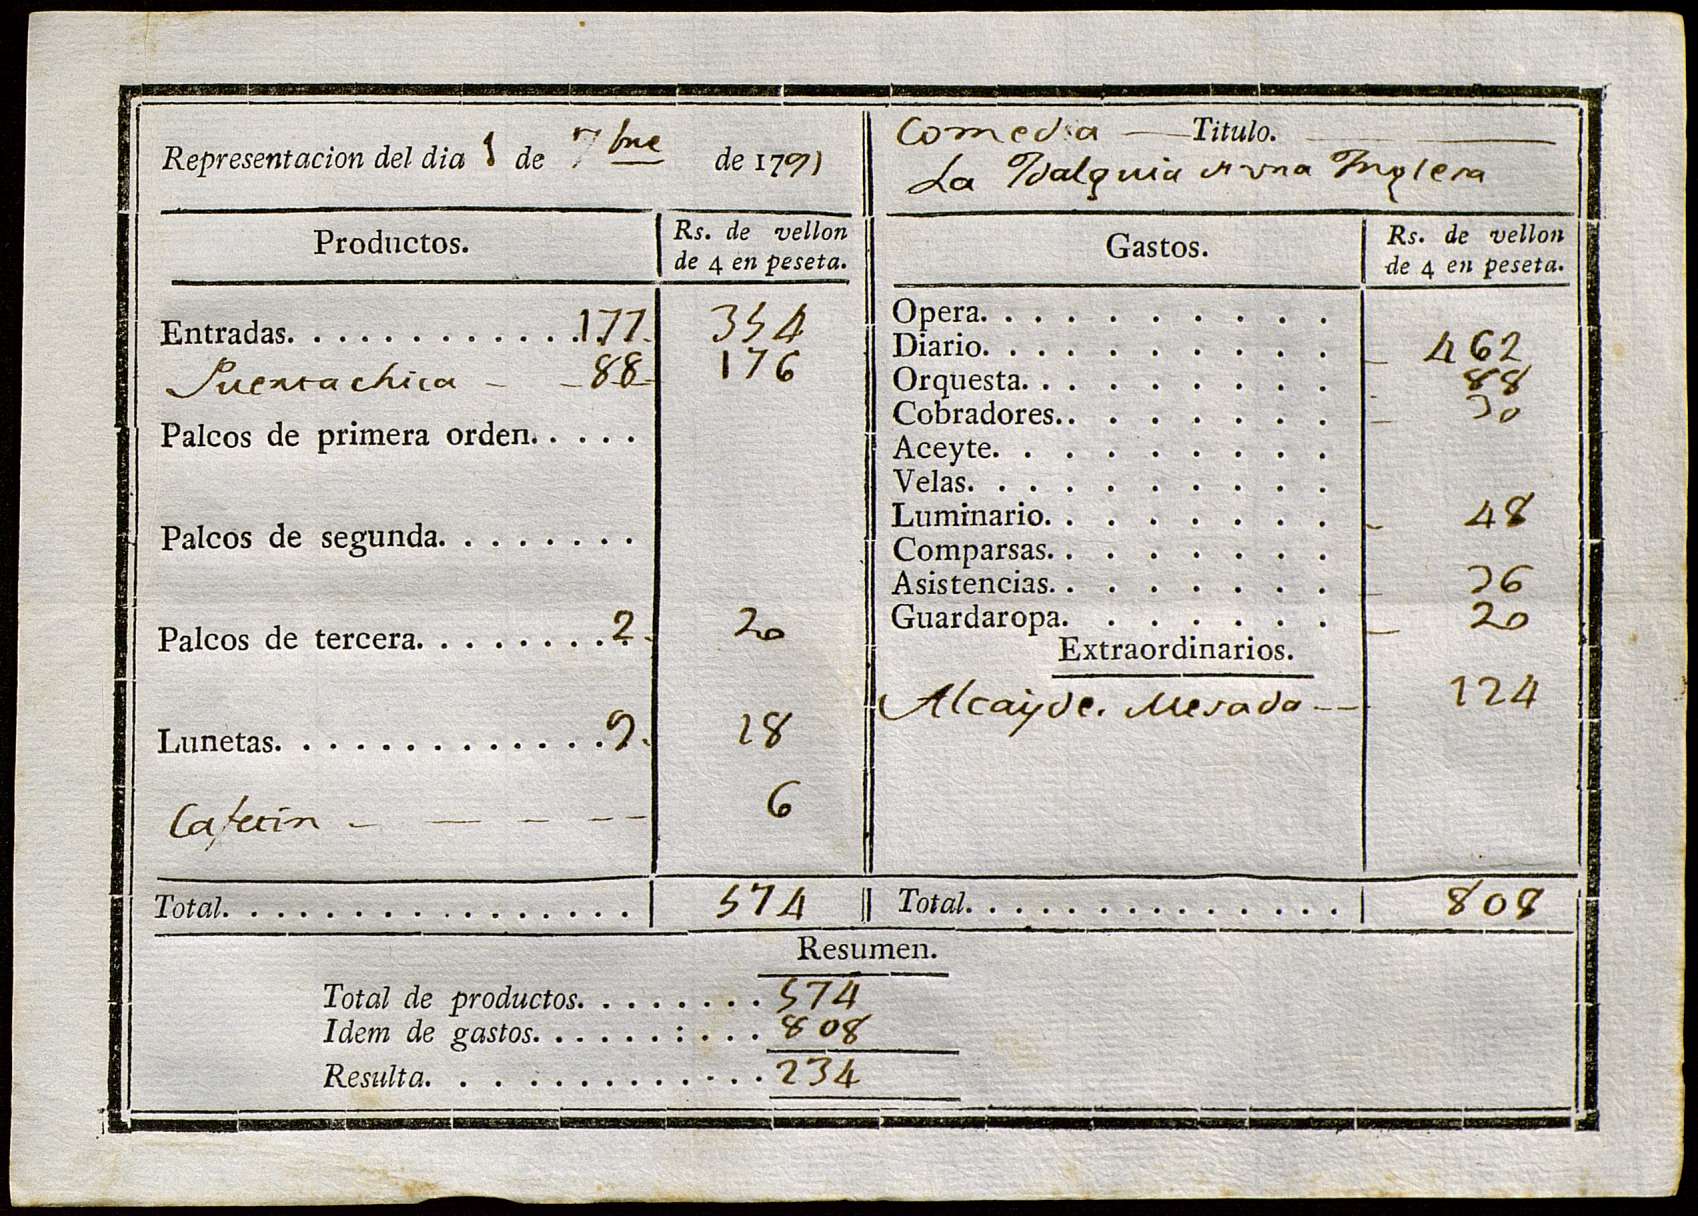 Representacion del dia 1 de 7bre de 1791
Comedia Titulo.
La Ydalguia de vna Ynglesa
Productos. Rs. de vellon de 4 en peseta.
Entradas. . . . . . . . . . . . 177. 354
Puerta chica - - 88 - 176
Palcos de primera orden. . . . .
Palcos de segunda. . . . . . . .
Palcos de tercera. . . . . . . . 2. 20
Lunetas. . . . . . . . . . . . . 9. 18
Cafetin - - - - - 6
Total. . . . . . . . . . . . . . . . 574
Gastos. Rs. de vellon de 4 en peseta.
Opera. . . . . . . . . .
Diario. . . . . . . . . . 462
Orquesta. . . . . . . . . 88
Cobradores. . . . . . . . 30
Aceyte. . . . . . . . .
Velas. . . . . . . . . .
Luminario. . . . . . . . 48
Comparsas. . . . . . . .
Asistencias. . . . . . . . 36
Guardaropa. . . . . . . 20
Extraordinarios.
Alcayde. Mesada - - 124
Total. . . . . . . . . . . . . . 808
Resumen.
Total de productos. . . . . . . . 574
Idem de gastos. . . . . . : . . . 808
Resulta. . . . . . . . . . . . . 234